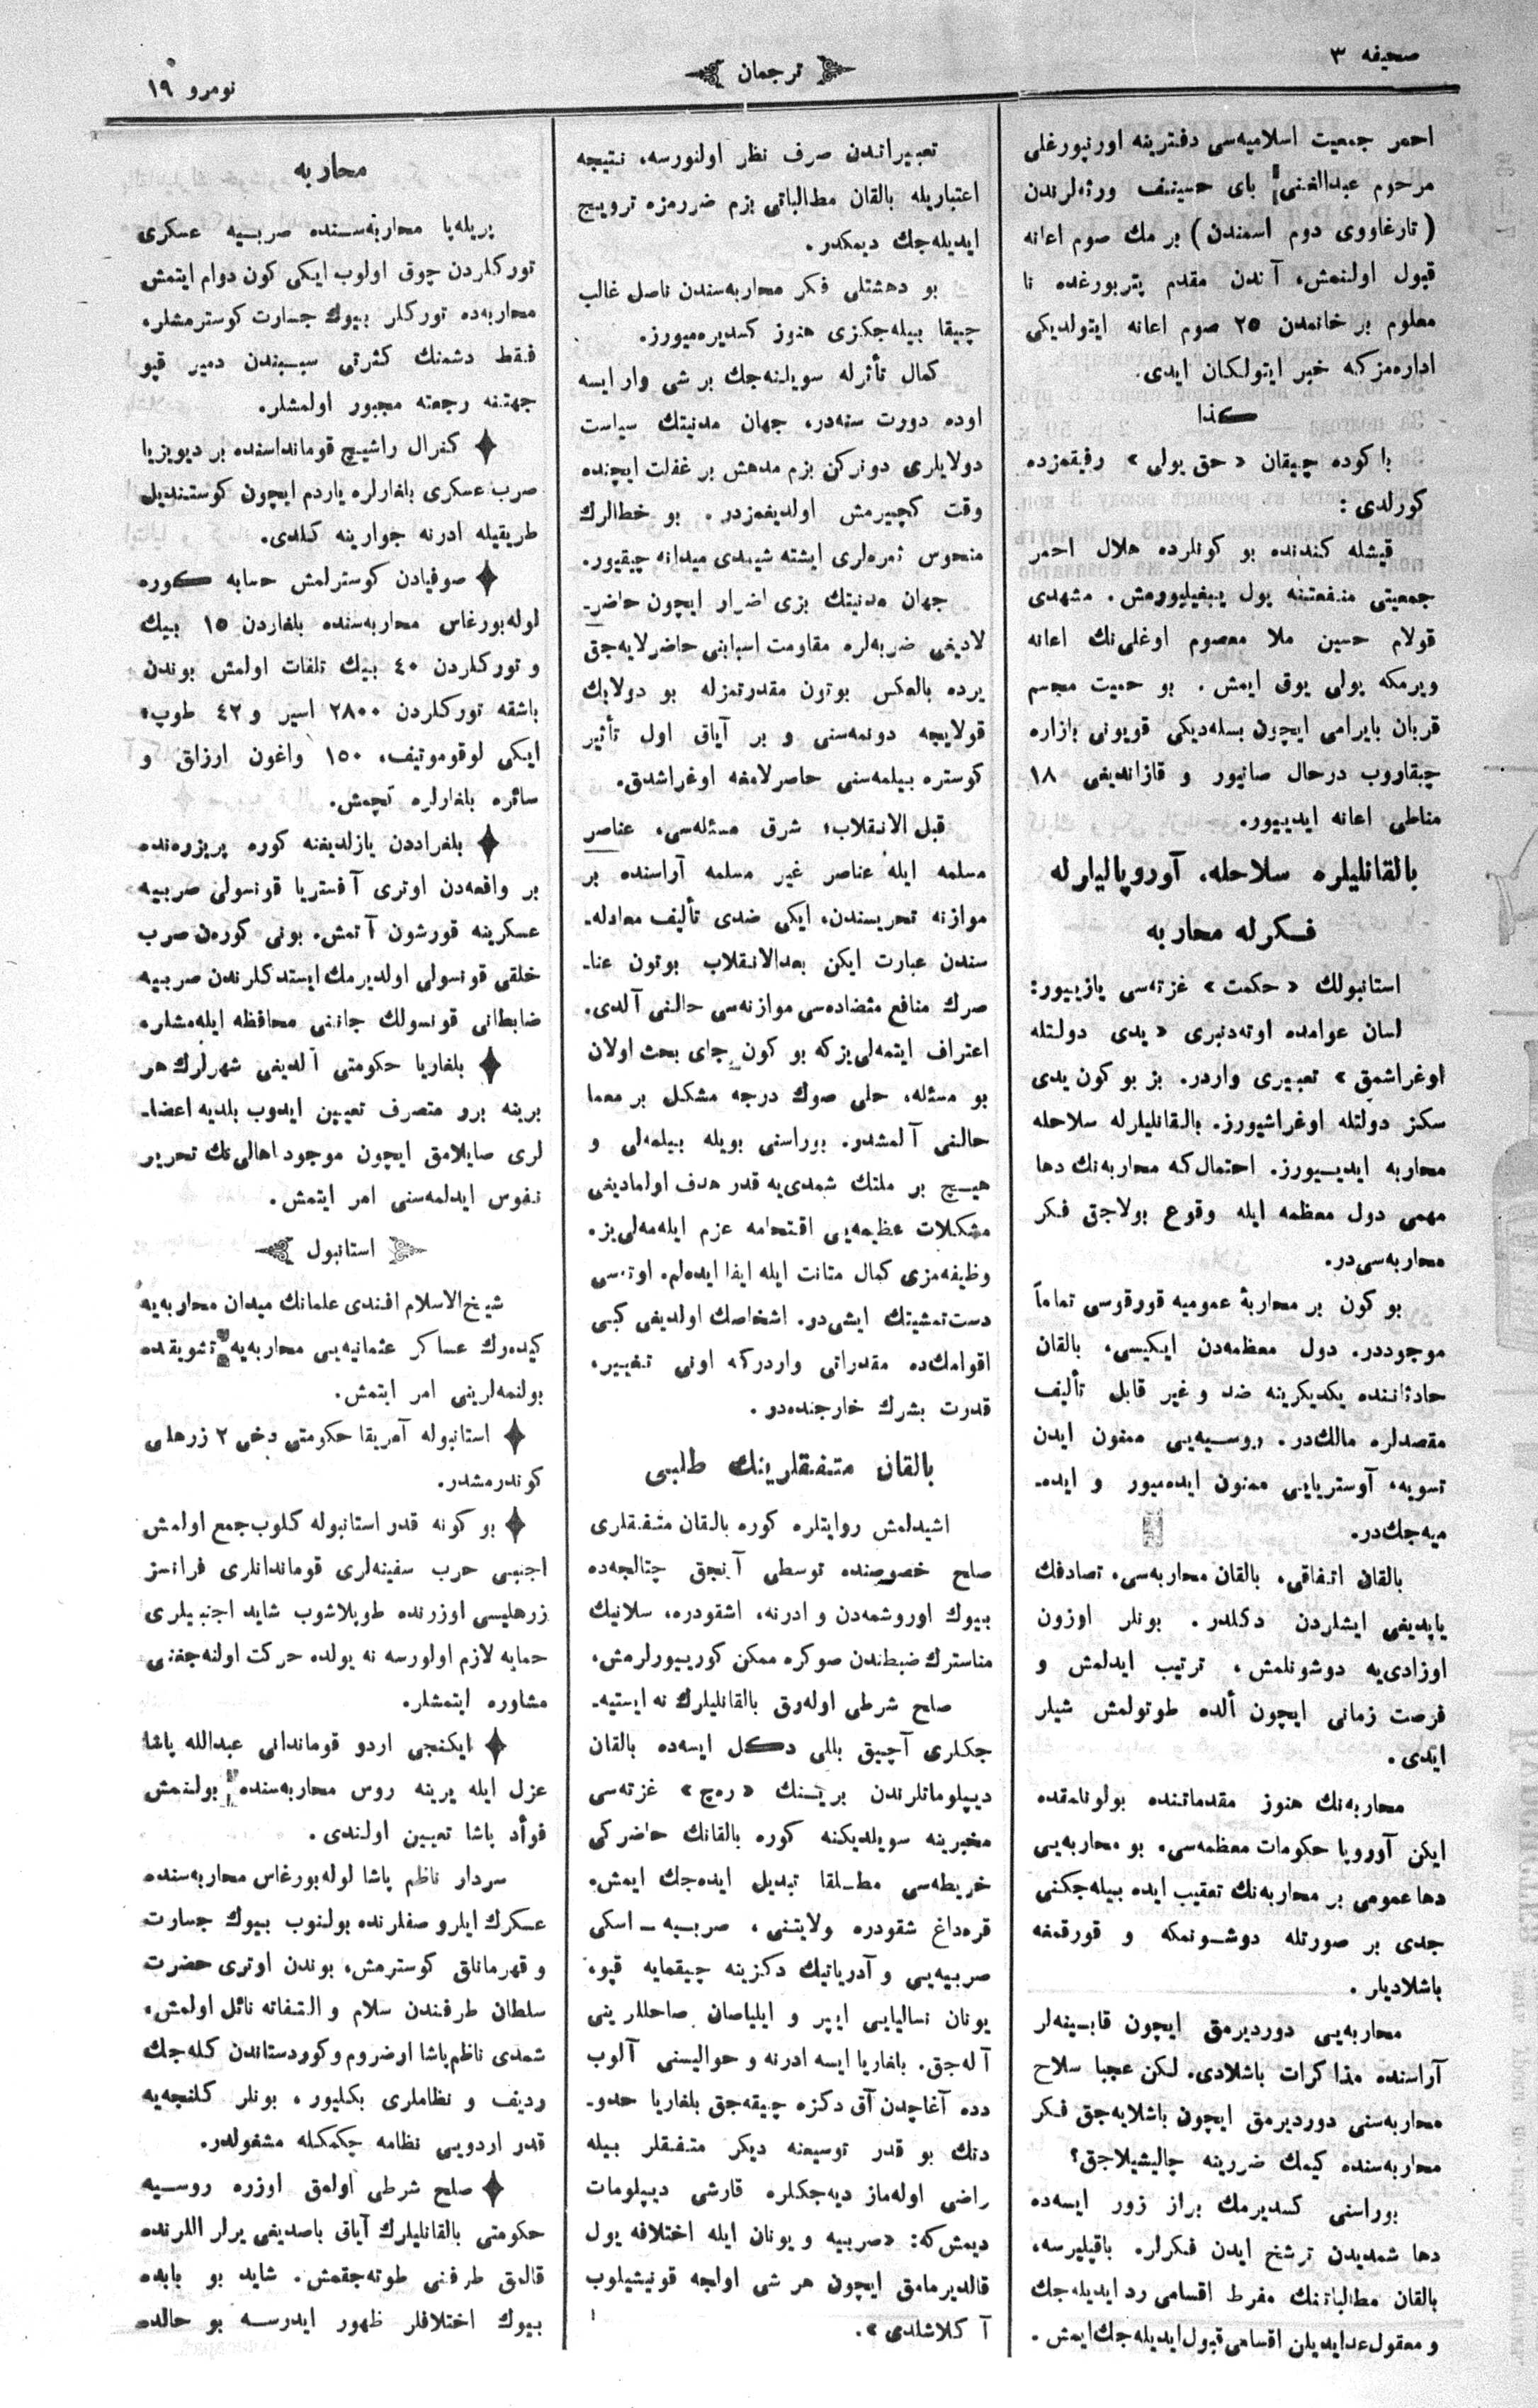 صحیفه ٣
ترجمان
نومرو ١٩
احمر جمعیت اسلامیه‌سی دفترینه اورنبورغلی
مرحوم عبدالغنی بای حسینیف ورثه‌لرندن
(تارغاووی دوم اسمندن) بر مك صوم اعانه
قبول اولنمش، آندن مقدم پتربورغده نا
معلوم بر خانمدن ٢٥ صوم اعانه ایتولدیکی
اداره‌مزکه خبر ایتولکان ایدی.
کذا
باکوده چیقان «حق یولی» رفیقمزده
کورلدی:
قیشله کندنده بو کونلرده هلال احمر
جمعیتی منفعتنه پول ییغیلیوومش. مشهدی
قولام حسین ملا معصوم اوغلی‌نك اعانه
ویرمکه پولی یوق ایمش. بو حمیت مجسم
قربان بایرامی ایچون بسله‌دیکی قویونی بازاره
چیقاروب درحال صاتیور و قازاندیغی ١٨
مناطی اعانه ایدییور.
بالقانلیلره سلاحله، آوروپالیلرله
فکرله محاربه
استانبولك «حکمت» غزته‌سی یازییور:
لسان عوامده اوته‌دنبری «یدی دولتله
اوغراشمق» تعبیری واردر. بز بو کون یدی
سکز دولتله اوغراشیورز. بالقانلیلرله سلاحله
محاربه ایدییورز. احتمال‌که محاربه‌نك دها
مهمی دول معظمه ایله وقوع بولاجق فکر
محاربه‌سی‌در.
بو کون بر محاربۀ عمومیه قورقوسی تماماً
موجوددر. دول معظمه‌دن ایکیسی، بالقان
حادثاتنده یکدیکرینه ضد و غیر قابل تألیف
مقصدلره مالك‌در. روسیه‌یی ممنون ایدن
تسویه، آوستریایی ممنون ایده‌میور و ایده-
میه‌جك‌در.
بالقان اتفاقی، بالقان محاربه‌سی، تصادفك
یاپدیغی ایشلردن دکلدر. بونلر اوزون
اوزادی‌یه دوشونلمش، ترتیب ایدلمش و
فرصت زمانی ایچون ألده طوتولمش شیلر
ایدی.
محاربه‌نك هنوز مقدماتنده بولونلمقده
ایکن آوروپا حکومات معظمه‌سی، بو محاربه‌یی
دها عمومی بر محاربه‌نك تعقیب ایده بیله‌جکنی
جدی بر صورتله دوشونمکه و قورقمغه
باشلادیلر.
محاربه‌یی دوردیرمق ایچون قابینه‌لر
آراسنده مذاکرات باشلادی. لکن عجبا سلاح
محاربه‌سنی دوردیرمق ایچون باشلایه‌جق فکر
محاربه‌سنده کیمك ضررینه چالیشیلاجق؟
بوراسنی کسدیرمك براز زور ایسه‌ده
دها شمدیدن ترشح ایدن فکرلره باقیلیرسه،
بالقان مطالباتنك مفرط اقسامی رد ایدیله‌جك
و معقول عد ایدیلن اقسامی قبول ایدیله‌جك ایمش.
تعبیراتدن صرف نظر اولنورسه، نتیجه
اعتباریله بالقان مطالباتی بزم ضررمزه ترویج
ایدیله‌جك دیمکدر.
بو دهشتلی فکر محاربه‌سندن ناصل غالب
چیقا بیله‌جکزی هنوز کسدیره‌میورز.
کمال تأثرله سویلنه‌جك بر شی وار ایسه
اوده دورت سنه‌در، جهان مدنیتك سیاست
دولابلری دونرکن بزم مدهش بر غفلت ایچنده
وقت کچیرمش اولدیغمزدر. بو خطالرك
منحوس ثمره‌لری ایشته شیمدی میدانه چیقیور.
جهان مدنیتك بزی اضرار ایچون حاضر-
لادیغی ضربه‌لره مقاومت اسبابنی حاضرلایه‌جق
یرده بالعکس بوتون مقدرتمزله بو دولابك
قولایجه دونمه‌سنی و بر آیاق اول تأثیر
کوستره بیلمه‌سنی حاضرلامغه اوغراشدق.
قبل الانقلاب، شرق مسئله‌سی، عناصر
مسلمه ایله عناصر غیر مسلمه آراسنده بر
موازنه تحریسندن، ایکی ضدی تألیف معادله-
سندن عبارت ایکن بعدالانقلاب بوتون عنا-
صرك منافع متضاده‌سی موازنه‌سی حالنی آلدی.
اعتراف ایتمه‌لی‌یزکه بو کون جای بحث اولان
بو مسئله، حلی صوك درجه مشکل بر معما
حالنی آلمشدر. بوراسنی بویله بیلمه‌لی و
هیچ بر ملتك شمدی‌یه قدر هدف اولمادیغی
مشکلات عظیمه‌یی اقتحامه عزم ایله‌مه‌لی‌یز.
وظیفه‌مزی کمال متانت ایله ایفا ایده‌لم. اوته‌سی
دست مشیتك ایشی‌در. اشخاصك اولدیغی کبی
اقوامك‌ده مقدراتی واردرکه اونی تغییر،
قدرت بشرك خارجنده‌در.
بالقان متفقلرینك طلبی
اشیدلمش روایتلره کوره بالقان متفقلری
صلح خصوصنده توسطی آنجق چتالجه‌ده
بیوك اوروشمه‌دن و ادرنه، اشقودره، سلانیك
مناسترك ضبطندن صوکره ممکن کورییورلرمش.
صلح شرطی اوله‌رق بالقانلیلرك نه ایستیه-
جکلری آچیق بللی دکل ایسه‌ده بالقان
دیپلوماتلرندن برینك «ره‌چ» غزته‌سی
مخبرینه سویلدیکنه کوره بالقانك حاضرکی
خریطه‌سی مطلقا تبدیل ایده‌جك ایمش.
قره‌داغ شقودره ولایتنی، صربیه - اسکی
صربیه‌یی و آدریاتیك دکزینه چیقمایه قپو،
یونان تسالیایی ایپر و ایلیاصان صاحللرینی
آله‌جق. بلغاریا ایسه ادرنه و حوالیسنی آلوب
دده آغاچدن آق دکزه چیقه‌جق بلغاریا حدو-
دنك بو قدر توسیعنه دیکر متفقلر بیله
راضی اوله‌ماز دیه‌جکلره قارشی دیپلومات
دیمش‌که: «صربیه و یونان ایله اختلافه یول
قالدیرمامق ایچون هر شی اولجه قونیشیلوب
آکلاشلدی».
محاربه
پریله‌پا محاربه‌سنده صربیه عسکری
تورکلردن چوق اولوب ایکی کون دوام ایتمش
محاربه‌ده تورکلر بیوك جسارت کوسترمشلر،
فقط دشمنك کثرتی سببندن دمیر قپو
جهتنه رجعته مجبور اولمشلر.
کنرال راشیچ قوماندا‌سنده بر دیویزیا
صرب عسکری بلغارلره یاردم ایچون کوستندیل
طریقیله ادرنه جوارینه کلدی.
صوفیادن کوسترلمش حسابه کوره
لوله‌بورغاس محاربه‌سنده بلغاردن ١٥ بیك
و تورکلردن ٤٠ بیك تلفات اولمش بوندن
باشقه تورکلردن ٢٨٠٠ اسیر و ٤٢ طوپ،
ایکی لوقوموتیف، ١٥٠ واغون ارزاق و
سائره بلغارلره کچمش.
بلغراددن یازلدیغنه کوره پریزره‌نده
بر واقعه‌دن اوتری آفستریا قونسولی صربیه
عسکرینه قورشون آتمش. بونی کورەن صرب
خلقی قونسولی اولدیرمك ایستدکلرندن صربیه
ضابطانی قونسولك جاننی محافظه ایله‌مشلر.
بلغاریا حکومتی آلدیغی شهرلرك هر
برینه برر متصرف تعیین ایدوب بلدیه اعضا-
لری صایلامق ایچون موجود اهالی‌نك تحریر
نفوس ایدلمه‌سنی امر ایتمش.
استانبول
شیخ‌الاسلام افندی علمانك میدان محاربه‌یه
کیده‌رك عساکر عثمانیه‌یی محاربه‌یه تشویقده
بولنمه‌لرینی امر ایتمش.
استانبوله آمریقا حکومتی دخی ٢ زرهلی
کوندرمشدر.
بو کونه قدر استانبوله کلوب جمع اولمش
اجنبی حرب سفینه‌لری قوماندانلری فرانسز
زرهلیسی اوزرنده طوپلاشوب شاید اجنبیلری
حمایه لازم اولورسه نه یولده حرکت اولنه‌جغنی
مشاوره ایتمشلر.
ایکنجی اردو قوماندانی عبدالله پاشا
عزل ایله یرینه روس محاربه‌سنده بولنمش
فوأد پاشا تعیین اولندی.
سردار ناظم پاشا لوله‌بورغاس محاربه‌سنده
عسکرك ایلرو صفلرنده بولنوب بیوك جسارت
و قهرمانلق کوسترمش، بوندن اوتری حضرت
سلطان طرفندن سلام و التفاته نائل اولمش،
شمدی ناظم پاشا ارضروم و کوردستاندن کله‌جك
ردیف و نظاملری بکلیور، بونلر کلنجه‌یه
قدر اردویی نظامه چکمکله مشغولدر.
صلح شرطی اولمق اوزره روسیه
حکومتی بالقانلیلرك آیاق باصدیغی یرلر اللرنده
قالمق طرفنی طوته‌جقمش. شاید بو بابده
بیوك اختلافلر ظهور ایدرسه بو حالده